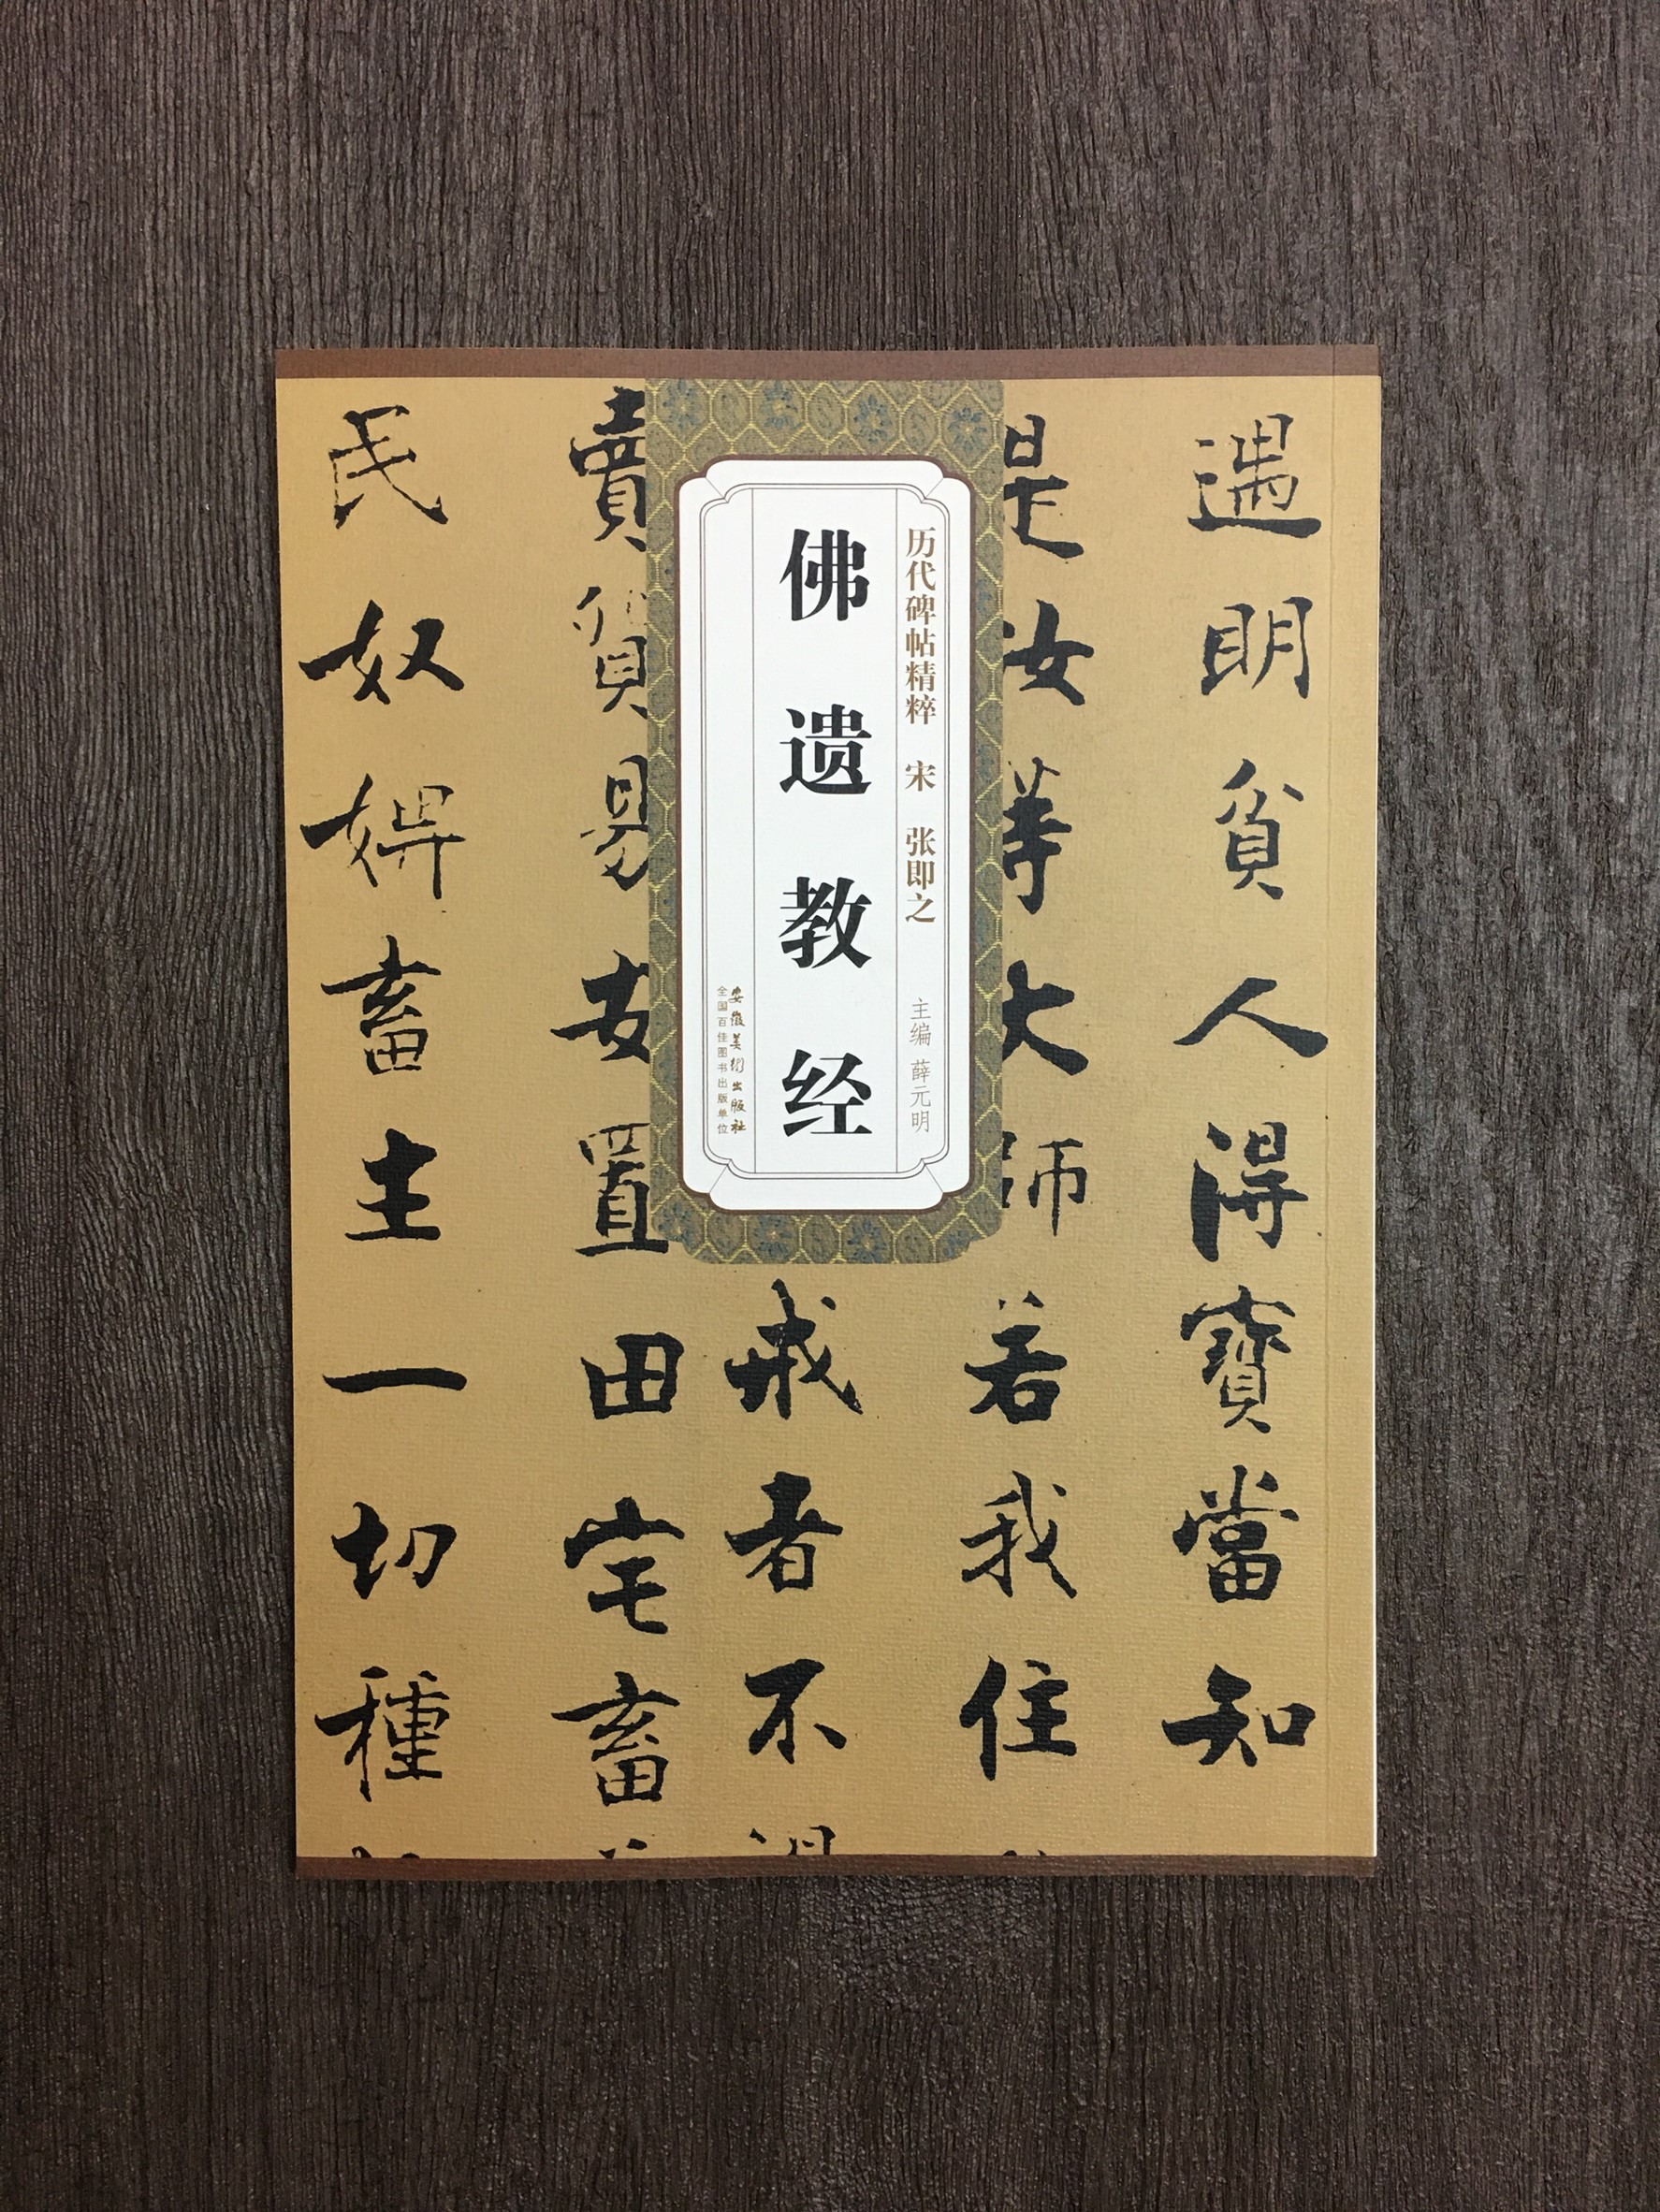 遇明貧人得寶當知
是汝等大師若我住
戒者不
賣貿易安置田宅畜
民奴婢畜主一切種
历代碑帖精粹 宋 张即之
主编 薛元明
佛遗教经
安徽美术出版社
全国百佳图书出版单位